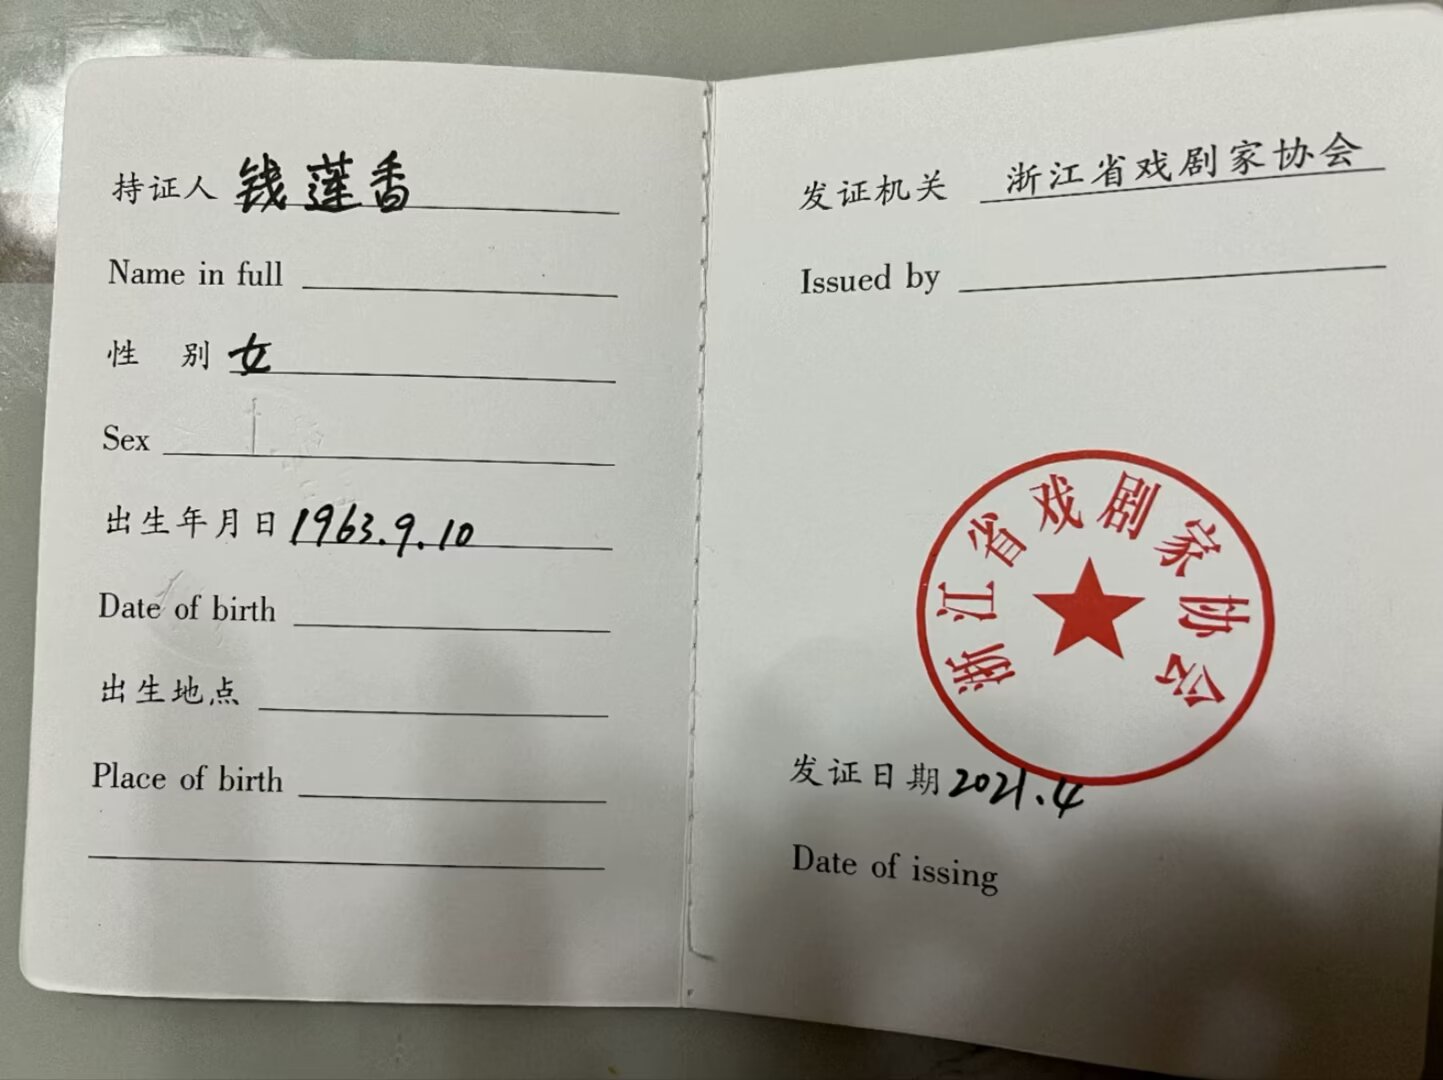 持证人 钱莲香
Name in full
性 别 女
Sex
出生年月日 1963.9.10
Date of birth
出生地点
Place of birth
发证机关 浙江省戏剧家协会
Issued by
浙江省戏剧家协会
发证日期 2021.4
Date of issing